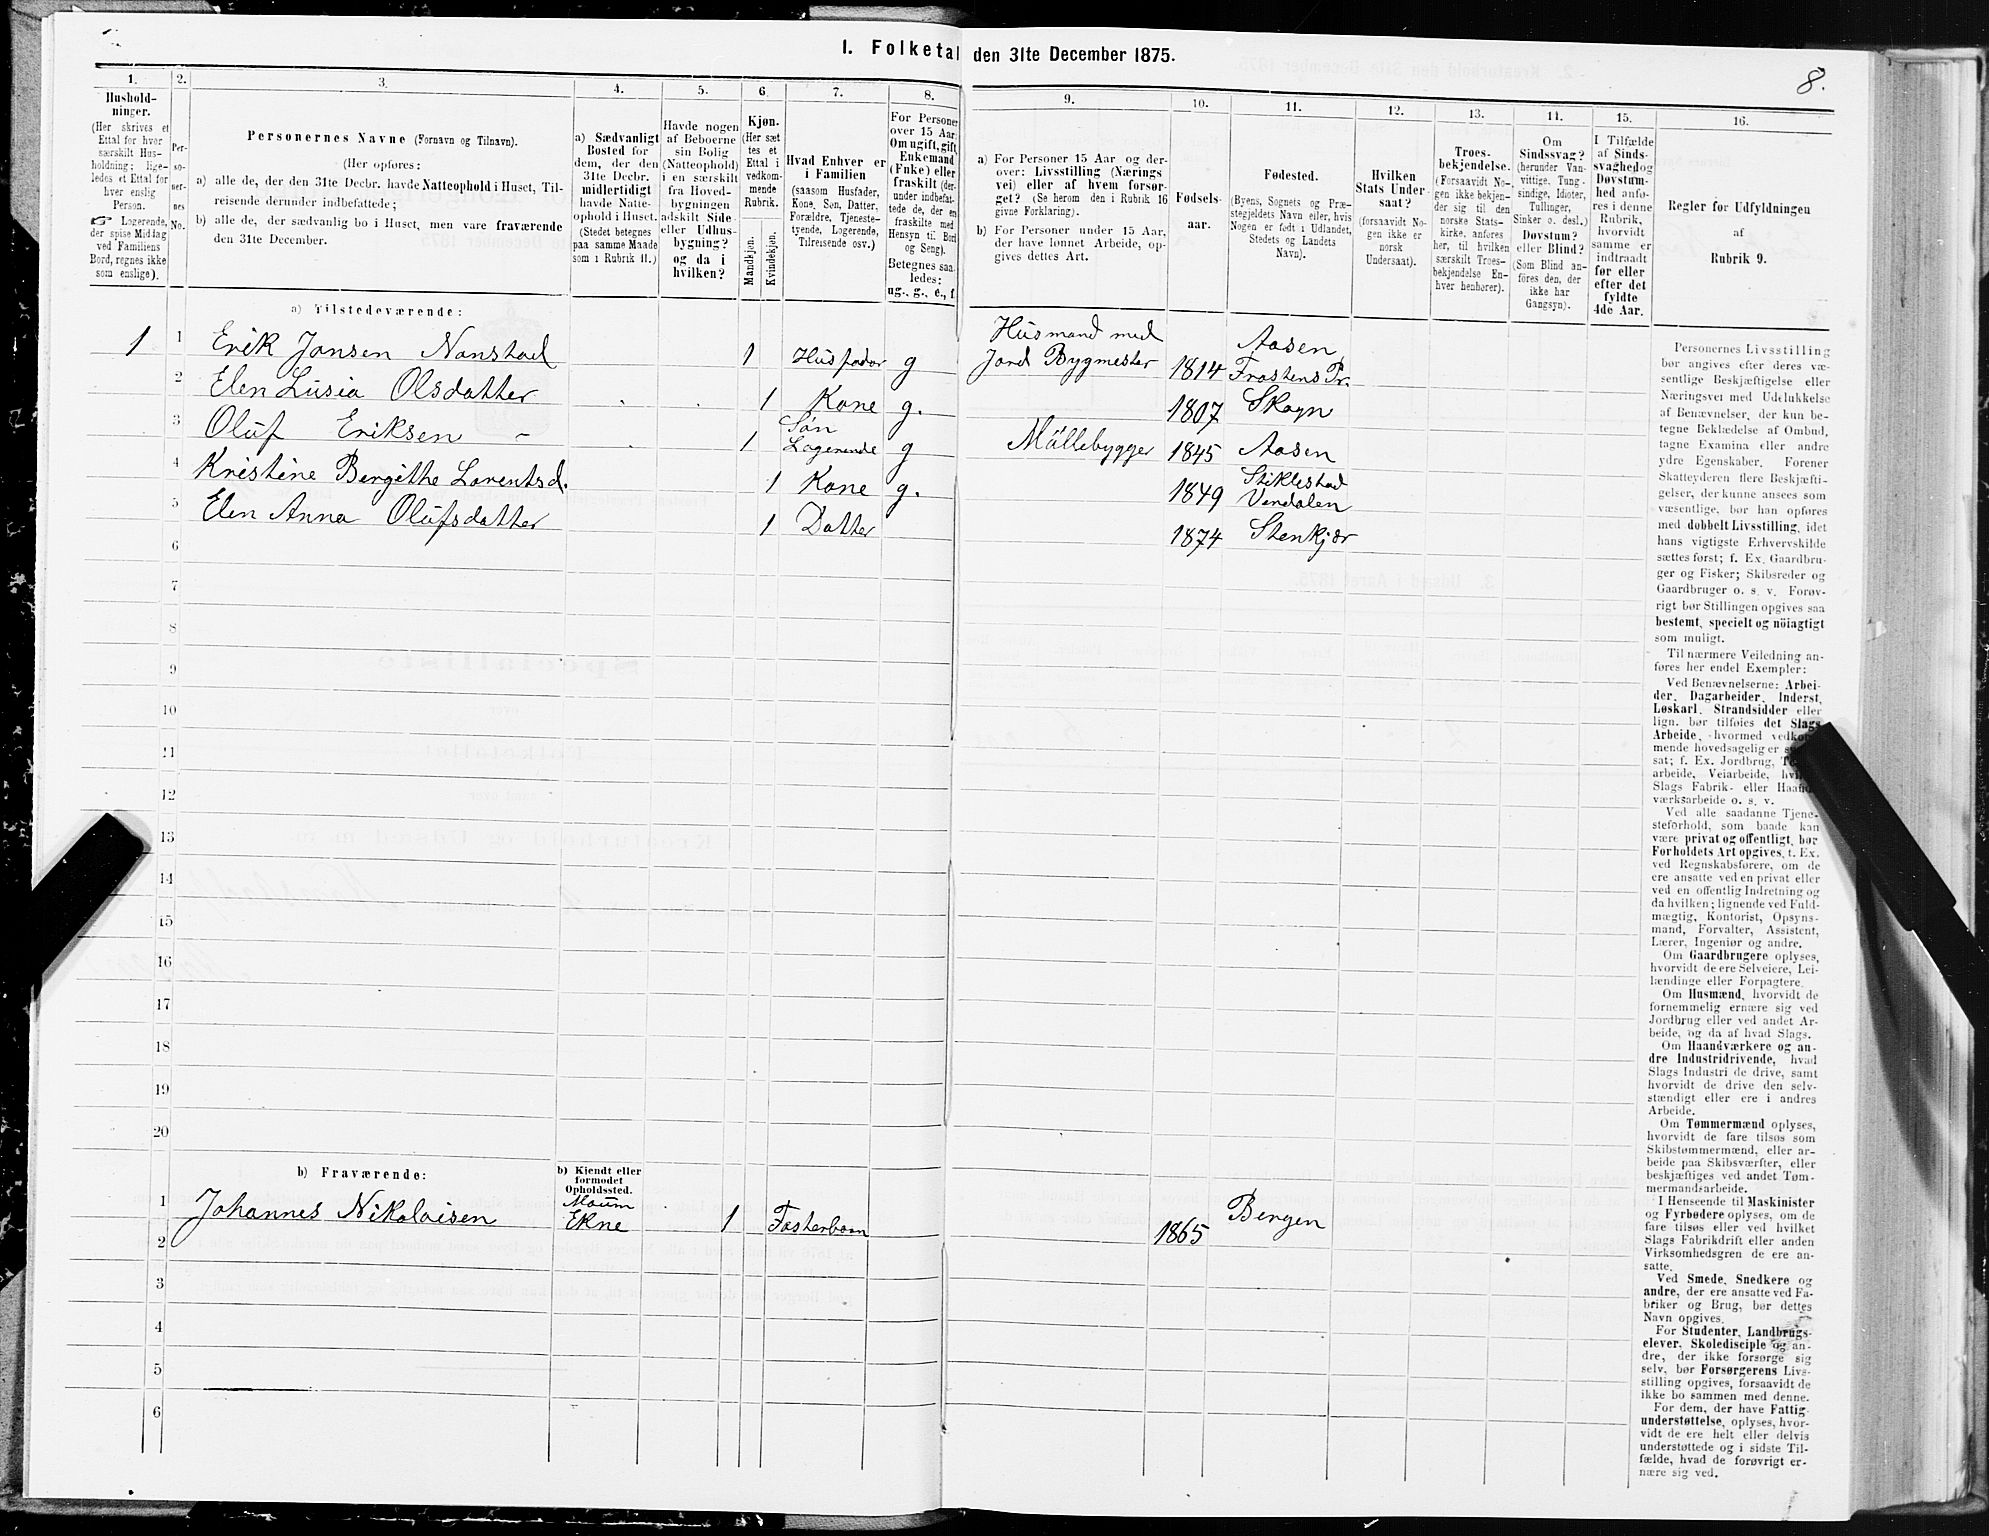 I. Folketal den 31te December 1875.
8.
1.
Hushold-
ninger.
(Her skrives et
Ettal for hver
særskilt Hus-
holdning; lige-
ledes et Ettal for
hver enslig
Person.
Logerende,
der spise Middag
ved Familiens
Bord, regnes ikke
som enslige).
2.
Per-
so-
ner-
nes
No.
3.
Personernes Navne (Fornavn og Tilnavn).
(Her opføres:
a) alle de, der den 31te Decbr. havde Natteophold i Huset, Til-
reisende derunder indbefattede;
b) alle de, der sædvanlig bo i Huset, men vare fraværende
den 31te December.
4.
a) Sædvanligt
Bosted for
dem, der den
31te Decbr.
midlertidigt
havde Natte-
ophold i Huset.
(Stedet betegnes
paa samme Maade
som i Rubrik 11.)
5.
Havde nogen
af Beboerne
sin Bolig
(Natteophold)
i en særskilt
fra Hoved-
bygningen
adskilt Side-
eller Udhus-
bygning?
og da i
hvilken?
6.
Kjøn.
(Her sæt
tes et
Ettal i
vedkom-
mende
Rubrik.
Mandkjøn.
Kvindekjøn.
7.
Hvad Enhver er
i Familien
(saasom Husfader,
Kone, Søn, Datter,
Forældre, Tjeneste-
tyende, Logerende,
Tilreisende osv.)
8.
For Personer
over 15 Aar:
Om ugift, gift,
Enkemand
(Enke) eller
fraskilt (der-
under indbefat-
tede de, der en
fraskilte med
Hensyn til Bord
og Seng).
Betegnes saa-
ledes:
ug., g., e., f.
9.
a) For Personer 15 Aar og der-
over: Livsstilling (Nærings
vei) eller af hvem forsør-
get? (Se herom den i Rubrik 16
givne Forklaring).
b) For Personer under 15 Aar,
der have lønnet Arbeide, op-
gives dettes Art.
10.
Fødsels-
aar.
11.
Fødested.
(Byens, Sognets og Præ-
stegjeldets Navn eller, hvis
Nogen er født i Udlandet,
Stedets og Landets
Navn).
12.
Hvilken
Stats Under-
saat?
(forsaavidt No-
gen ikke er
norsk
Undersaat).
13.
Troes-
bekjendelse.
(Forsaavidt No-
gen ikke bekjen-
der sig til den
norske Stats-
kirke, anføres
her, til hvilken
særskilt Troes-
bekjendelse En-
hver henhører).
14.
Om
Sindssvag?
(herunder Van-
vittige, Tung-
sindige, Idioter,
Tullinger,
Sinker o. desl.)
Døvstum?
eller Blind?
(Som Blind an-
føres den, der
ikke har
Gangsyn).
15.
I Tilfælde
af Sinds-
svaghed og
Døvstum-
hed anfø-
res i denne
Rubrik,
hvorvidt
samme er
indtraadt
før eller
efter det
fyldte
4de Aar.
16.
Regler for Udfyldningen
af
Rubrik 9.
a) Tilstedeværende:
1 1 Erik Jonsen Nonstad 1 Husfader g Husmand med
Jord Bygmester 1814 Aasen
Frostens Pr.
2 Elen Lusia Olsdatter 1 Kone g. 1807 Skogn
3 Oluf Eriksen - 1 Søn
Logerende g Møllebygger 1845 Aasen
4 Kristine Bergithe Lorentsd. 1 Kone g. 1849 Stiklestad
Verdalen
5 Elen Anna Olufsdatter 1 Datter 1874 Stenkjær
6
7
8
9
10
11
12
13
14
15
16
17
18
19
20
b) Fraværende:
b) Kjendt eller
formodet
Opholdssted.
1 Johannes Nikolaisen
Ekne 1 Fosterbarn 1865 Bergen
2
3
4
5
6
Personernes Livsstilling
bør angives efter deres væ-
sentlige Beskjæftigelse eller
Næringsvei med Udelukkelse
af Benævnelser, der kun be-
tegne Beklædelse af Ombud,
tagne Examina eller andre
ydre Egenskaber. Forener
Skatteyderen flere Beskjæfti-
gelser, der kunne ansees som
væsentlige, bør han opføres
med dobbelt Livsstilling, idet
hans vigtigste Erhvervskilde
sættes først; f. Ex. Gaardbru-
ger og Fisker; Skibsreder og
Gaardbruger o. s. v. Forøv-
rigt bør Stillingen opgives saa
bestemt, specielt og nöiagtigt
som muligt.
Til nærmere Veiledning an-
føres her endel Exempler:
Ved Benævnelserne: Arbei-
der, Dagarbeider, Inderst,
Løskarl, Strandsidder eller
lign. bør tilføies det Slags
Arbeide, hvormed vedkom-
mende hovedsagelig er
sat; f. Ex. Jordbrug,
arbeide, Veiarbeide,
Slags Fabrik- eller Haand-
værksarbeide o. s. v.
Ved alle saadanne Tjene-
steforhold, som baade kan
være privat og offentligt, bør
Forholdets Art opgives, f. Ex.
ved Regnskabsførere, om de
ere ansatte ved en privat eller
ved en offentlig Indretning og
da hvilken; lignende ved Fuld-
mægtig, Kontorist, Opsyns-
mand, Forvalter, Assistent,
Lærer, Ingeniør og andre.
Om Gaardbrugere oplyses,
hvorvidt de ere Selveiere, Lei-
lændinge eller Forpagtere.
Om Husmænd, hvorvidt de
fornemmelig ernære sig ved
Jordbrug eller ved andet Ar-
beide, og da af hvad Slags.
Om Haandværkere og an-
dre Industridrivende, hvad
Slags Industri de drive, samt
hvorvidt de drive den selv-
stændigt eller ere i andres
Arbeide.
Om Tømmermænd oplyses,
hvorvidt de fare tilsøs som
Skibstømmermænd, eller ar-
beide paa Skibsværfter, eller
beskjæftiges ved andet Tøm-
mermandsarbeide.
I Henseende til Maskinister
og Fyrbødere oplyses, om de
fare tilsøs eller ved hvilket
Slags Fabrikdrift eller anden
Virksomhedsgren de ere an-
satte.
Ved Smede, Snedkere og
andre, der ere ansatte ved Fa-
briker og Brug, bør dettes
Navn opgives.
For Studenter, Landbrugs-
elever, Skoledisciple og an-
dre, der ikke forsørge sig
selv, bør Forsørgerens Livs-
stilling opgives, forsaavidt de
ikke bo sammen med denne.
For dem, der have Fattig-
understøttelse, oplyses, hvor-
vidt de ere helt eller delvis
understøttede og i sidste Til-
fælde, hvad de forøvrigt er-
nære sig ved.